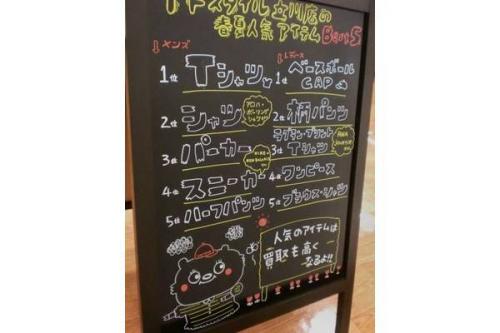 ドドスタイル立川店の
春夏人気アイテム Best 5
↓メンズ
1位 Tシャツ
2位 シャツ
アロハ・ボーリングシャツが
3位 パーカー
4位 スニーカー
5位 ハーフパンツ
↓レディース
1位 ベースボールCAP
2位 柄パンツ
3位 Tシャツ
4位 ワンピース
5位 ブラウス・シャツ
人気のアイテムは
買取も高く
なるよ!!